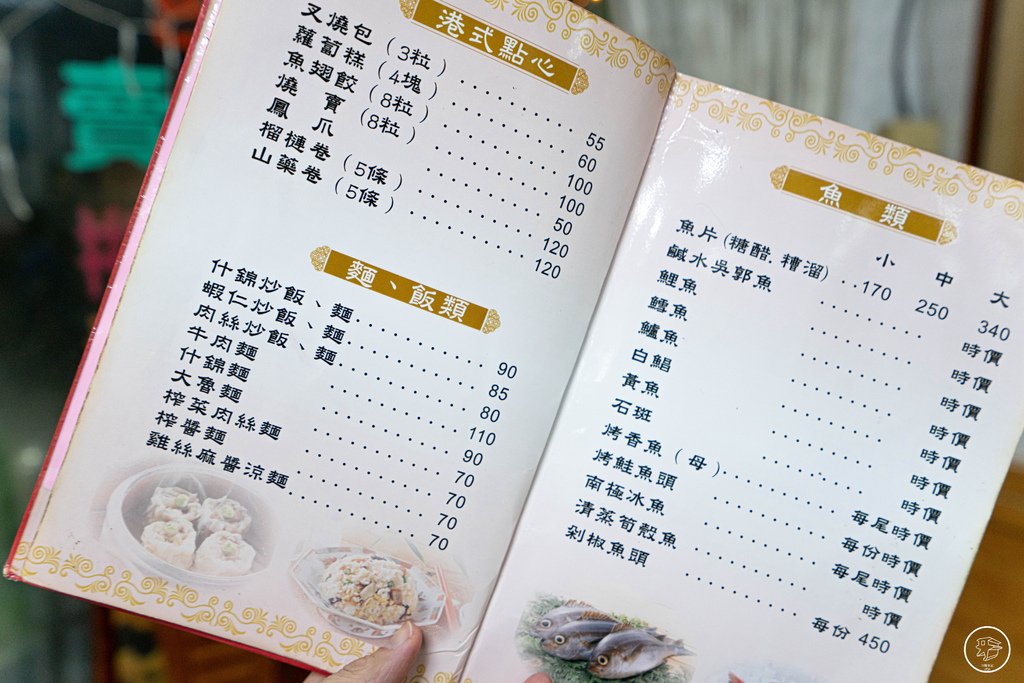 港式點心
叉燒包（3粒）............ 55
蘿蔔糕（4塊）............ 60
魚翅餃（8粒）............ 100
燒賣（8粒）............ 100
鳳爪............ 50
榴槤卷（5條）............ 120
山藥卷（5條）............ 120
麵、飯類
什錦炒飯、麵............ 90
蝦仁炒飯、麵............ 85
肉絲炒飯、麵............ 80
牛肉麵............ 110
什錦麵............ 90
大魯麵............ 70
榨菜肉絲麵............ 70
榨醬麵............ 70
雞絲麻醬涼麵............ 70
魚類
小 中 大
魚片(糖醋.糟溜)..170 250 340
鹹水吳郭魚......... 時價
鯉魚......... 時價
鱈魚......... 時價
鱸魚......... 時價
白鯧......... 時價
黃魚......... 時價
石斑......... 時價
烤香魚（母）......... 每尾時價
烤鮭魚頭......... 每份時價
南極冰魚......... 每尾時價
清蒸筍殼魚......... 時價
剁椒魚頭......... 每份 450